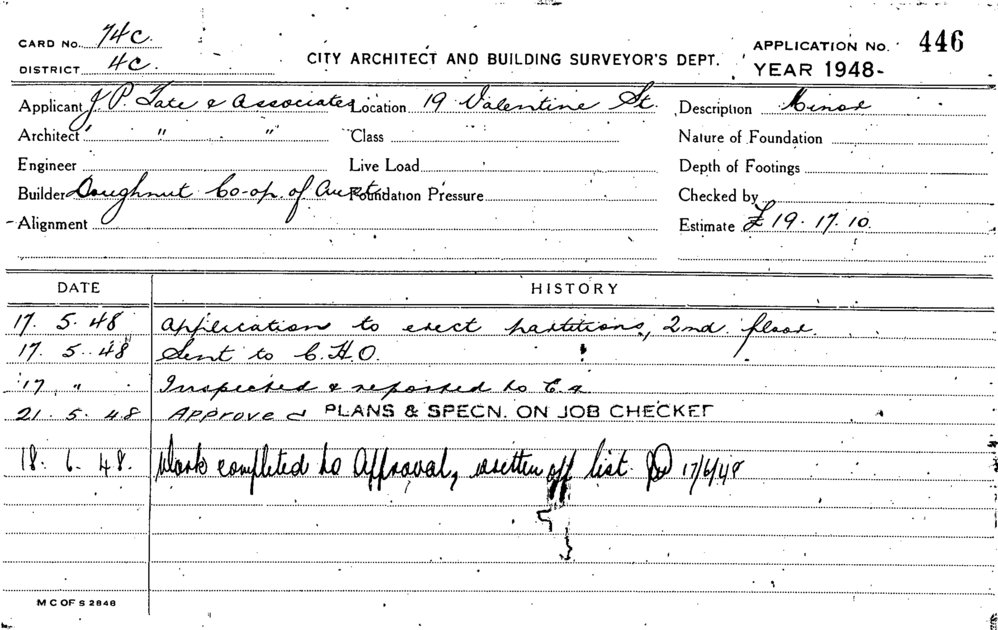 CARD NO. 74C. CITY ARCHITECT AND BUILDING SURVEYOR'S DEPT. APPLICATION NO. 446
DISTRICT 4C. YEAR 1948-
Applicant J. P. Tate & Associates Location 19 Valentine St. Description Minor
Architect " " Class Nature of Foundation
Engineer Live Load Depth of Footings
Builder Doughnut Co-op. of Aust. Foundation Pressure Checked by
Alignment Estimate £19.17.10.
DATE HISTORY
17. 5. 48 Application to erect partitions, 2nd floor.
17. 5. 48 Sent to C.H.O.
17 " Inspected & reported to
21. 5. 48 Approved PLANS & SPECN. ON JOB CHECKED
18. 6. 48. Work completed to Approval, written off list. 17/6/48
M C OF S 2848